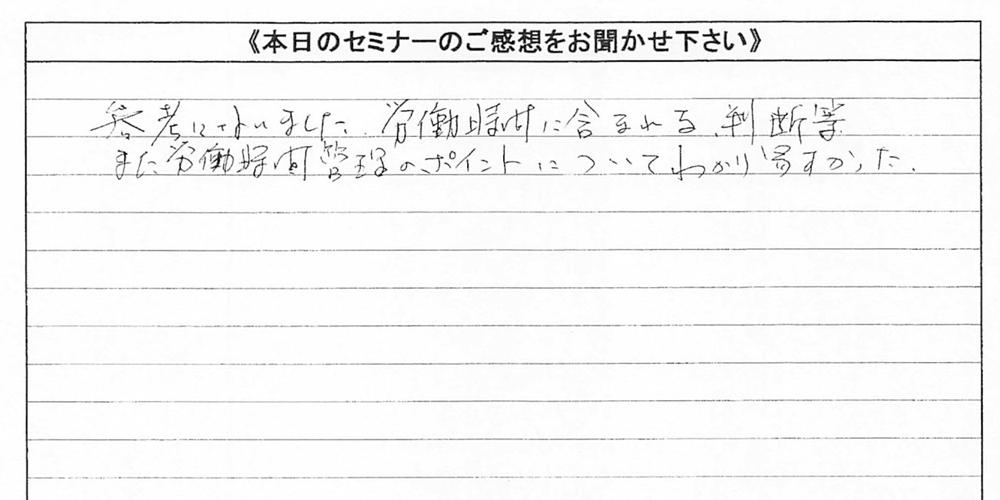 《本日のセミナーのご感想をお聞かせ下さい》
参考になりました。労働時間に含まれる、判断等
また労働時間管理のポイントについてわかり易すかった。